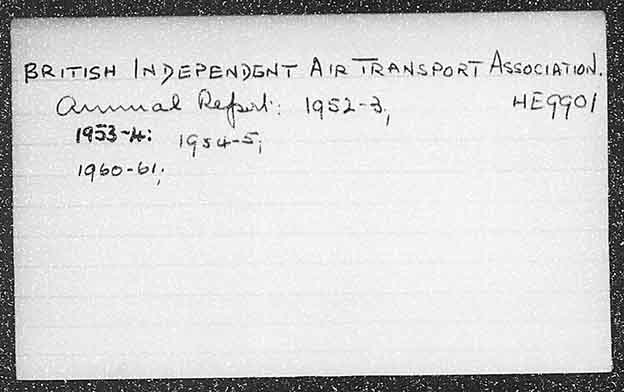 BRITISH INDEPENDENT AIR TRANSPORT ASSOCIATION.
Annual Report: 1952-3; HE9901
1953-4: 1954-5;
1960-61;